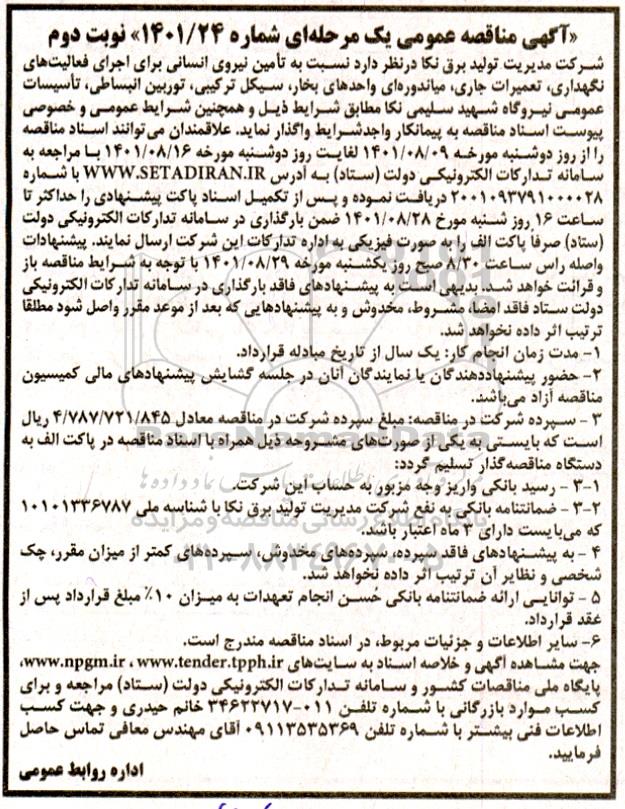 «آگهی مناقصه عمومی یک مرحله‌ای شماره ۱۴۰۱/۲۴» نوبت دوم
شرکت مدیریت تولید برق نکا درنظر دارد نسبت به تأمین نیروی انسانی برای اجرای فعالیت‌های
نگهداری، تعمیرات جاری، میاندوره‌ای واحدهای بخار، سیکل ترکیبی، توربین انبساطی، تأسیسات
عمومی نیروگاه شهید سلیمی نکا مطابق شرایط ذیل و همچنین شرایط عمومی و خصوصی
پیوست اسناد مناقصه به پیمانکار واجدشرایط واگذار نماید. علاقمندان می‌توانند اسناد مناقصه
را از روز دوشنبه مورخه ۱۴۰۱/۰۸/۰۹ لغایت روز دوشنبه مورخه ۱۴۰۱/۰۸/۱۶ با مراجعه به
سامانه تدارکات الکترونیکی دولت (ستاد) به آدرس WWW.SETADIRAN.IR با شماره
۲۰۰۱۰۹۳۷۹۱۰۰۰۰۲۸ دریافت نموده و پس از تکمیل اسناد پاکت پیشنهادی را حداکثر تا
ساعت ۱۶ روز شنبه مورخ ۱۴۰۱/۰۸/۲۸ ضمن بارگذاری در سامانه تدارکات الکترونیکی دولت
(ستاد) صرفاً پاکت الف را به صورت فیزیکی به اداره تدارکات این شرکت ارسال نمایند. پیشنهادات
واصله راس ساعت ۸/۳۰ صبح روز یکشنبه مورخه ۱۴۰۱/۰۸/۲۹ با توجه به شرایط مناقصه باز
و قرائت خواهد شد. بدیهی است به پیشنهادهای فاقد بارگذاری در سامانه تدارکات الکترونیکی
دولت ستاد فاقد امضا، مشروط، مخدوش و به پیشنهادهایی که بعد از موعد مقرر واصل شود مطلقا
ترتیب اثر داده نخواهد شد.
۱- مدت زمان انجام کار: یک سال از تاریخ مبادله قرارداد.
۲- حضور پیشنهاددهندگان یا نمایندگان آنان در جلسه گشایش پیشنهادهای مالی کمیسیون
مناقصه آزاد می‌باشد.
۳ - سپرده شرکت در مناقصه: مبلغ سپرده شرکت در مناقصه معادل ۴/۷۸۷/۷۲۱/۸۴۵ ریال
است که بایستی به یکی از صورت‌های مشروحه ذیل همراه با اسناد مناقصه در پاکت الف به
دستگاه مناقصه‌گذار تسلیم گردد:
۳-۱ - رسید بانکی واریز وجه مزبور به حساب این شرکت.
۳-۲ - ضمانتنامه بانکی به نفع شرکت مدیریت تولید برق نکا با شناسه ملی ۱۰۱۰۱۳۳۶۷۸۷
که می‌بایست دارای ۳ ماه اعتبار باشد.
۴ - به پیشنهادهای فاقد سپرده، سپرده‌های مخدوش، سپرده‌های کمتر از میزان مقرر، چک
شخصی و نظایر آن ترتیب اثر داده نخواهد شد.
۵ - توانایی ارائه ضمانتنامه بانکی حُسن انجام تعهدات به میزان ۱۰٪ مبلغ قرارداد پس از
عقد قرارداد.
۶- سایر اطلاعات و جزئیات مربوط، در اسناد مناقصه مندرج است.
جهت مشاهده آگهی و خلاصه اسناد به سایت‌های www.npgm.ir ، www.tender.tpph.ir،
پایگاه ملی مناقصات کشور و سامانه تدارکات الکترونیکی دولت (ستاد) مراجعه و برای
کسب موارد بازرگانی با شماره تلفن ۰۱۱-۳۴۶۲۲۷۱۷ خانم حیدری و جهت کسب
اطلاعات فنی بیشتر با شماره تلفن ۰۹۱۱۳۵۳۵۳۶۹ آقای مهندس معافی تماس حاصل
فرمایید.
اداره روابط عمومی